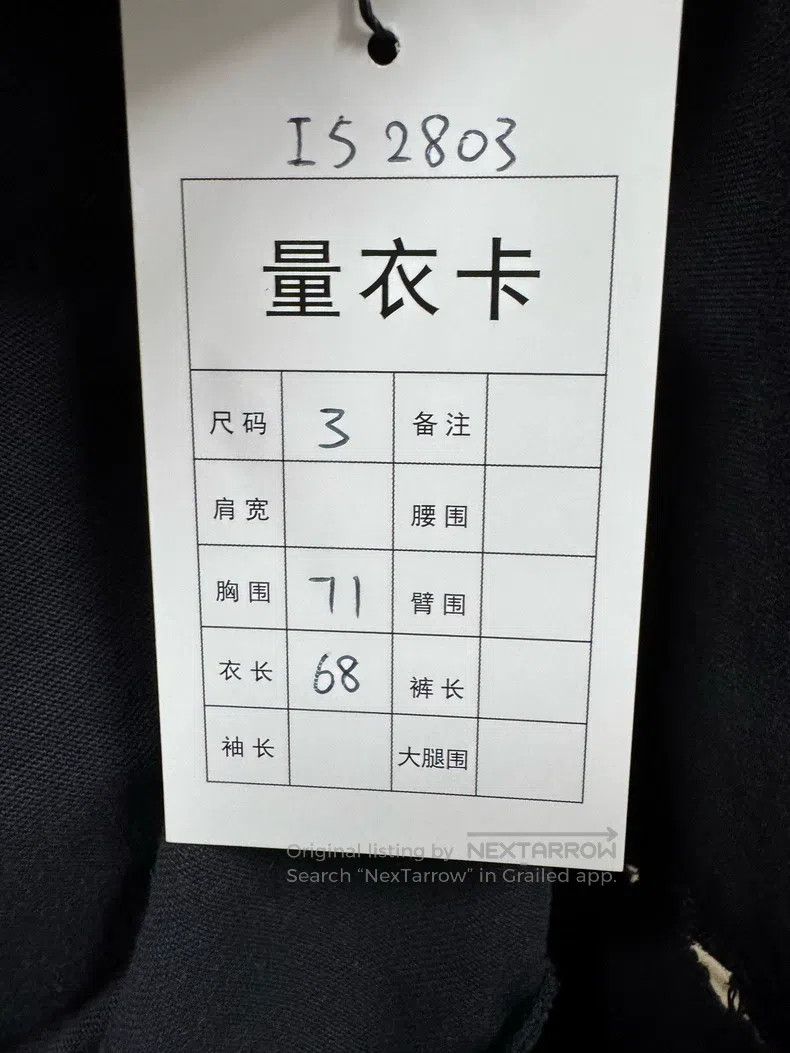 IS 2803
量衣卡
尺码 3 备注
肩宽 腰围
胸围 71 臂围
衣长 68 裤长
袖长 大腿围
Original listing by NEXTARROW
Search “NexTarrow” in Grailed app.